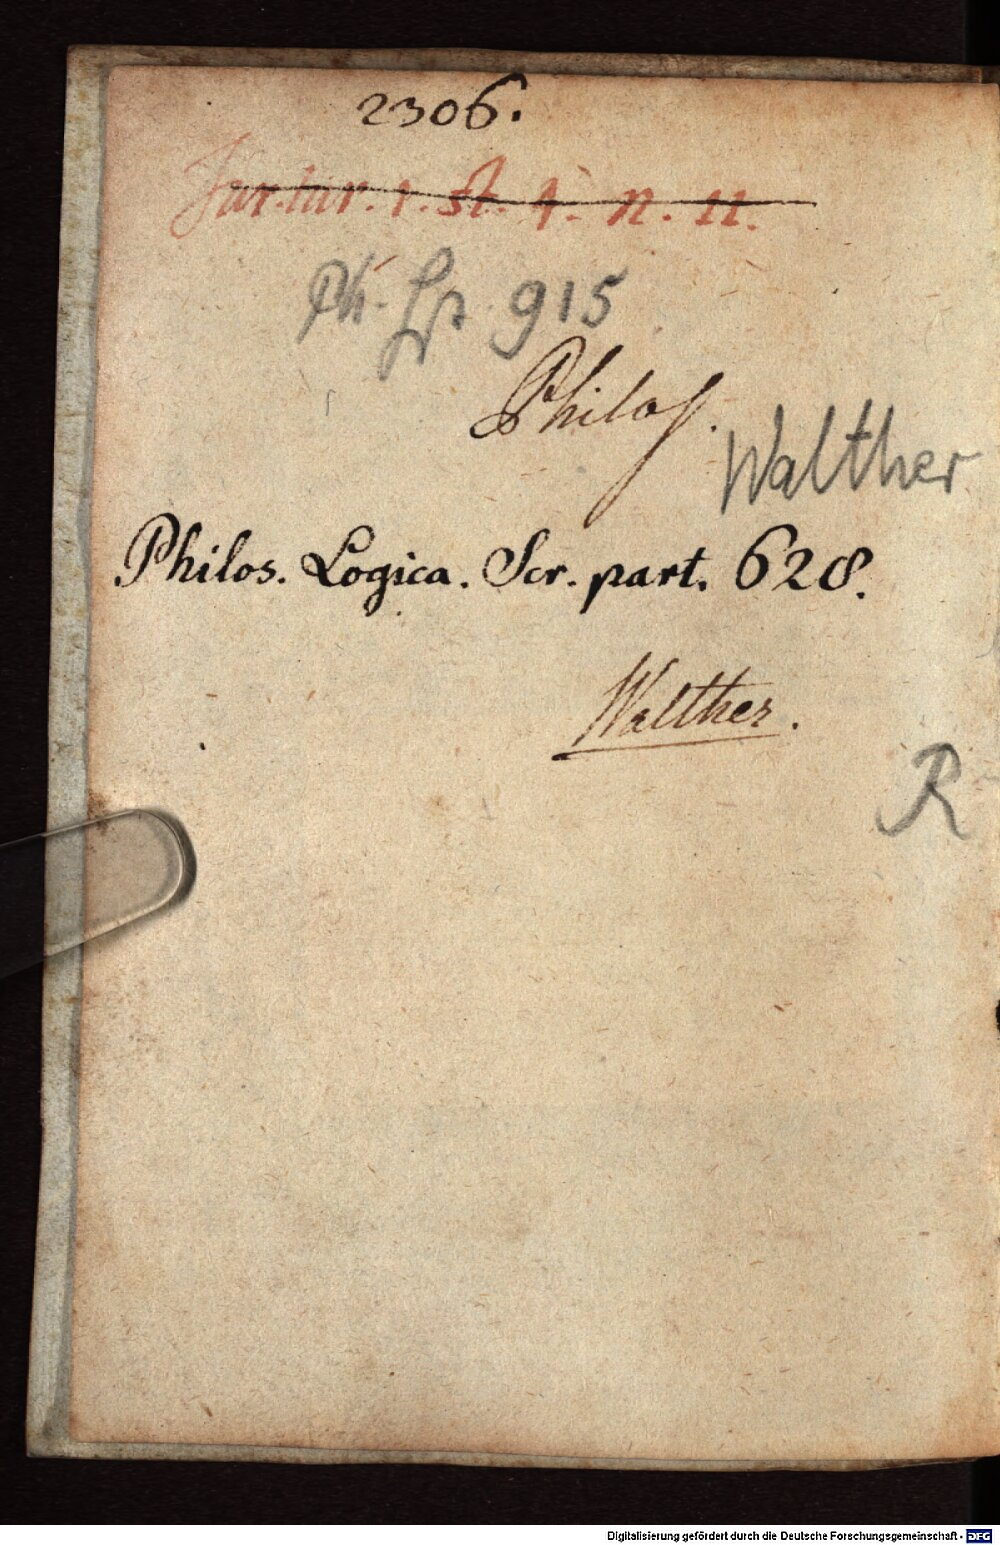 2306.
Jur. ... 1. St. 4. n. 11.
Ph. Sp. 915
Philos.
Walther
Philos. Logica. Scr. part. 628.
Walther.
R
Digitalisierung gefördert durch die Deutsche Forschungsgemeinschaft - DFG